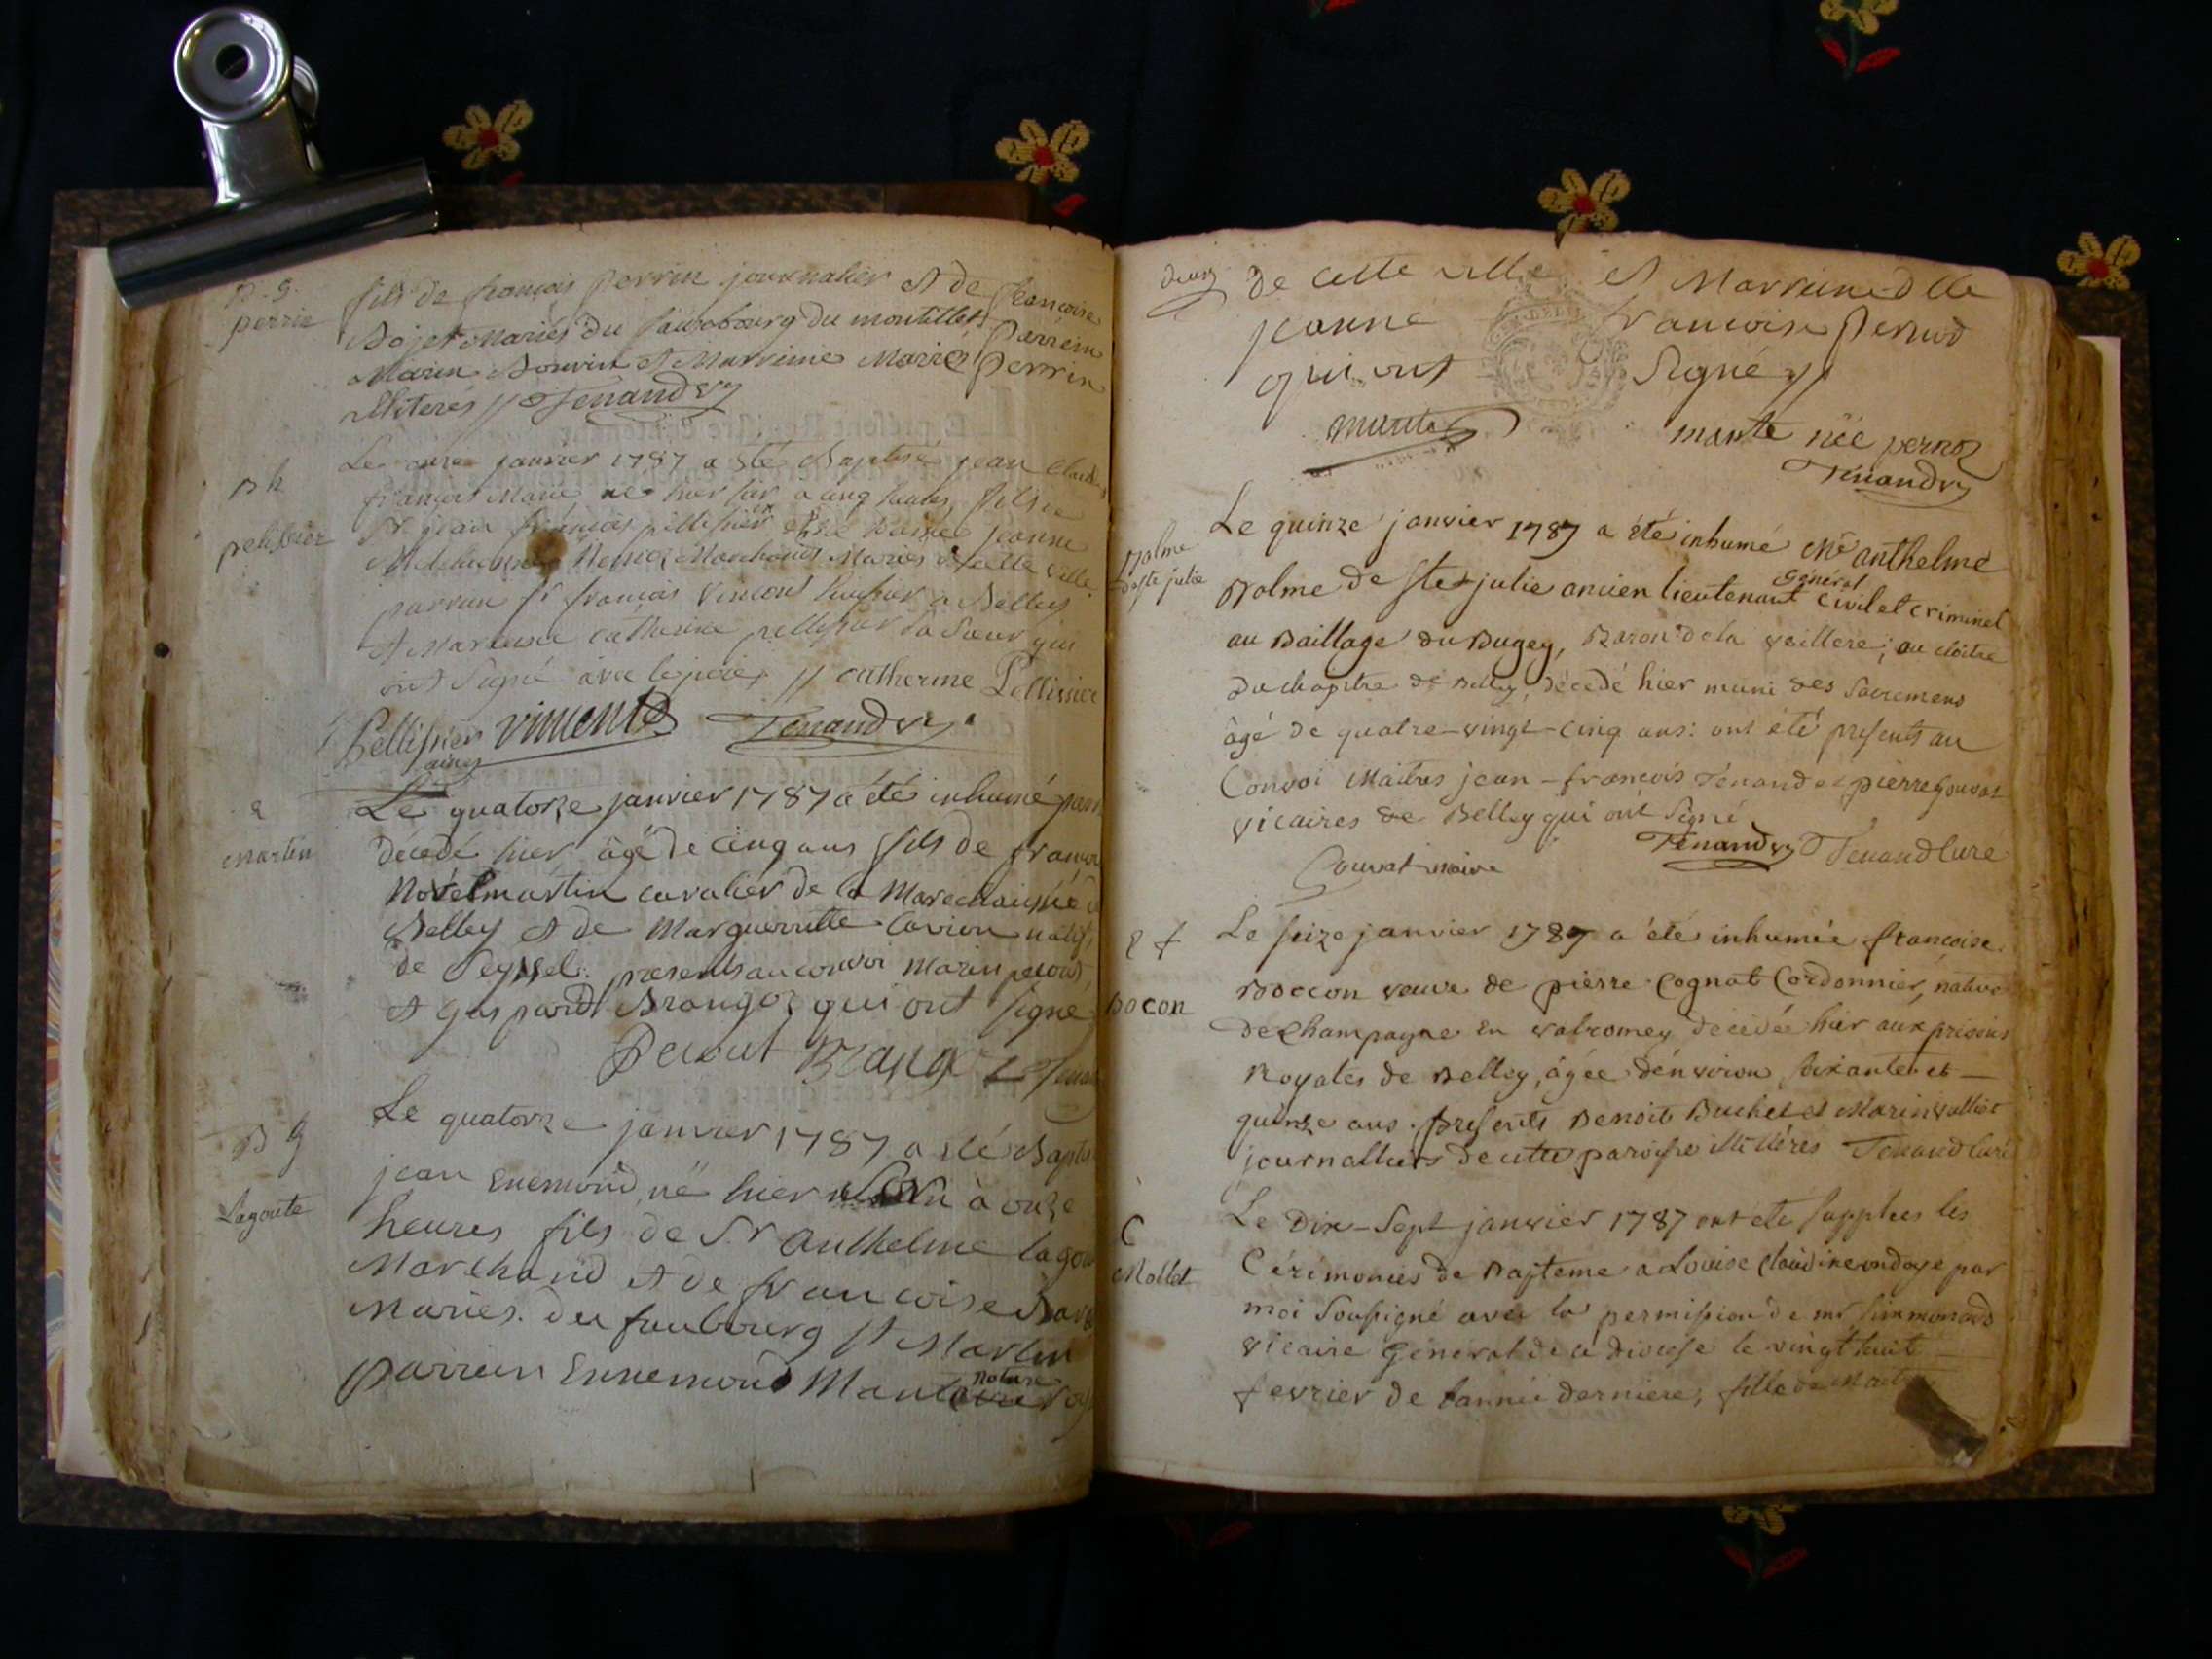 B. g.
perrin
fils de françois perrin journalier et de françoise
Bojet Mariés du fauxbourg du montillet, Parrein
Marin Bouvin et Marreine Marie Perrin
illiterés // Tenand vz
B h
pelissier
Le onze janvier 1787 a été Baptisé jean Claude
françois Marie, né hier soir a cinq heures, fils de
Sr jean françois pellissier et de Dame jeanne
Marchands Mariés de cette ville
parrain Sr françois Vincent huissier a Belley
et Marreine catherine pellissier sa soeur qui
ont Signé avec le père // catherine Pellissier
Pellissier vincent Tenand vz
ainé
Martin
Le quatorze janvier 1787 a été inhumé
décedé hier âgé de cinq ans fils de françois
Novelmartin cavalier de la Marechaussée
Belley et de Marguerritte Cavion natif
de Seyssel. presents au convoi Marin perout
et Gaspard Brangoz qui ont signé
Perout Brangoz
B g
Lagoute
Le quatorze janvier 1787 a été Baptisé
jean Enemond, né hier à onze
heures fils de Sr Anthelme lagou
Marchand et de francoise
Mariés. du faubourg St Martin
parrein Ennemond Mante notaire
deux
de cette ville et Marreine Dlle
jeanne francoise Pernod
qui ont Signé //
mante
mante née pernoz
Tenand vz
Balme
de ste julie
Le quinze janvier 1787 a été inhumé Me anthelme
Balme de Ste julie ancien lieutenant général civil et criminel
au Baillage du Bugey, Baron de la veillere; au cloitre
du chapitre de Belley, décedé hier muni des Sacremens
âgé de quatre-vingt-cinq ans: ont été presents au
Convoi Maitres jean-françois Tenand et pierre Gouvat
vicaires de Belley qui ont Signé
Gouvat vicaire Tenand vz Tenand Curé
Bocon
Le seize janvier 1787 a été inhumée françoise
Boccon veuve de pierre Cognat Cordonnier, native
de Champagne en valromey décedée hier aux prisons
Royales de Belley, âgée d'environ soixante et
quinze ans. presents Benoit Buchet et Marin valliot
journalliers de cette paroisse illitterés Tenand Curé
C
Mollet
Le Dix-Sept janvier 1787 ont été suppléés les
Cérémonies de Bapteme a Louise Claudine ondoyé par
moi Soussigné avec la permission de mr
vicaire Général de ce diocese le vingt huit
fevrier de l'année derniere, fille de